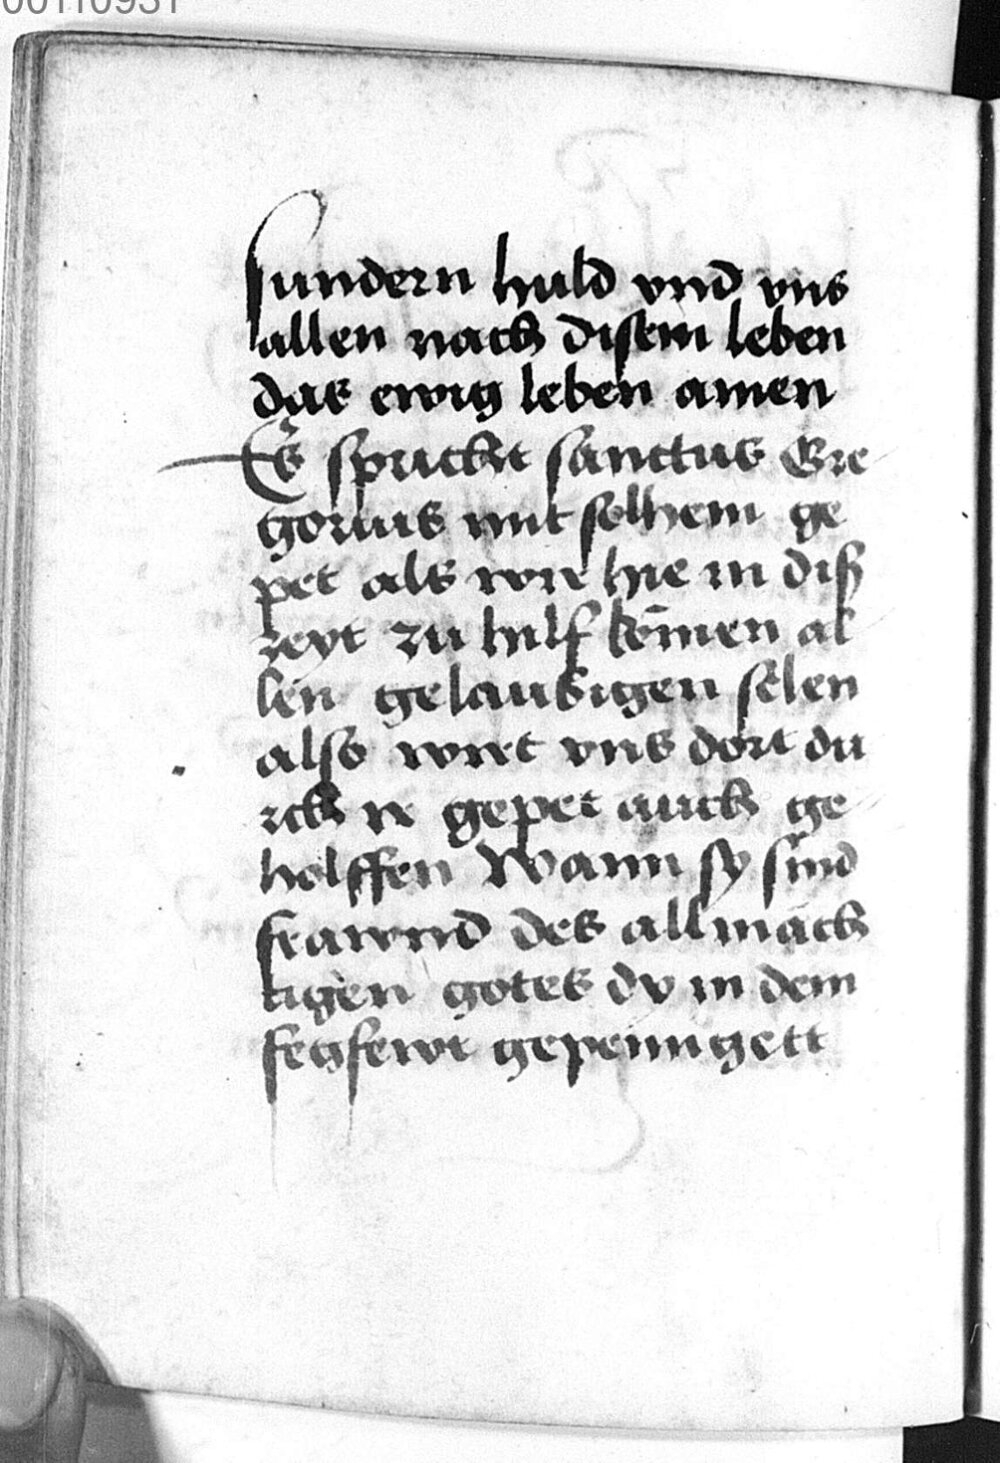 00110931
sundern huld vnd vns
allen nach disem leben
das ewig leben amen
Es spricht sanctus Gre
gorius mit solhem ge
pet als wir hie in diß
zeyt zu hilf kōmen al
len gelaubigen selen
also wirt vns dort du
rch ir gepet auch ge
holffen Wann sy sind
frawnd des allmäch
tigen gotes dy in dem
fegfewr gepeinigett